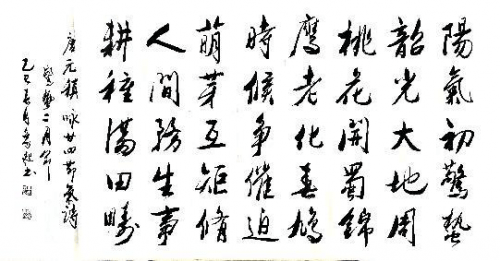 陽氣初驚蟄
韶光大地周
桃花開蜀錦
鷹老化春鳩
時候爭催迫
萌芽互矩脩
人間務生事
耕種滿田疇
唐元稹詠廿四節氣詩
驚蟄二月節
乙巳月書